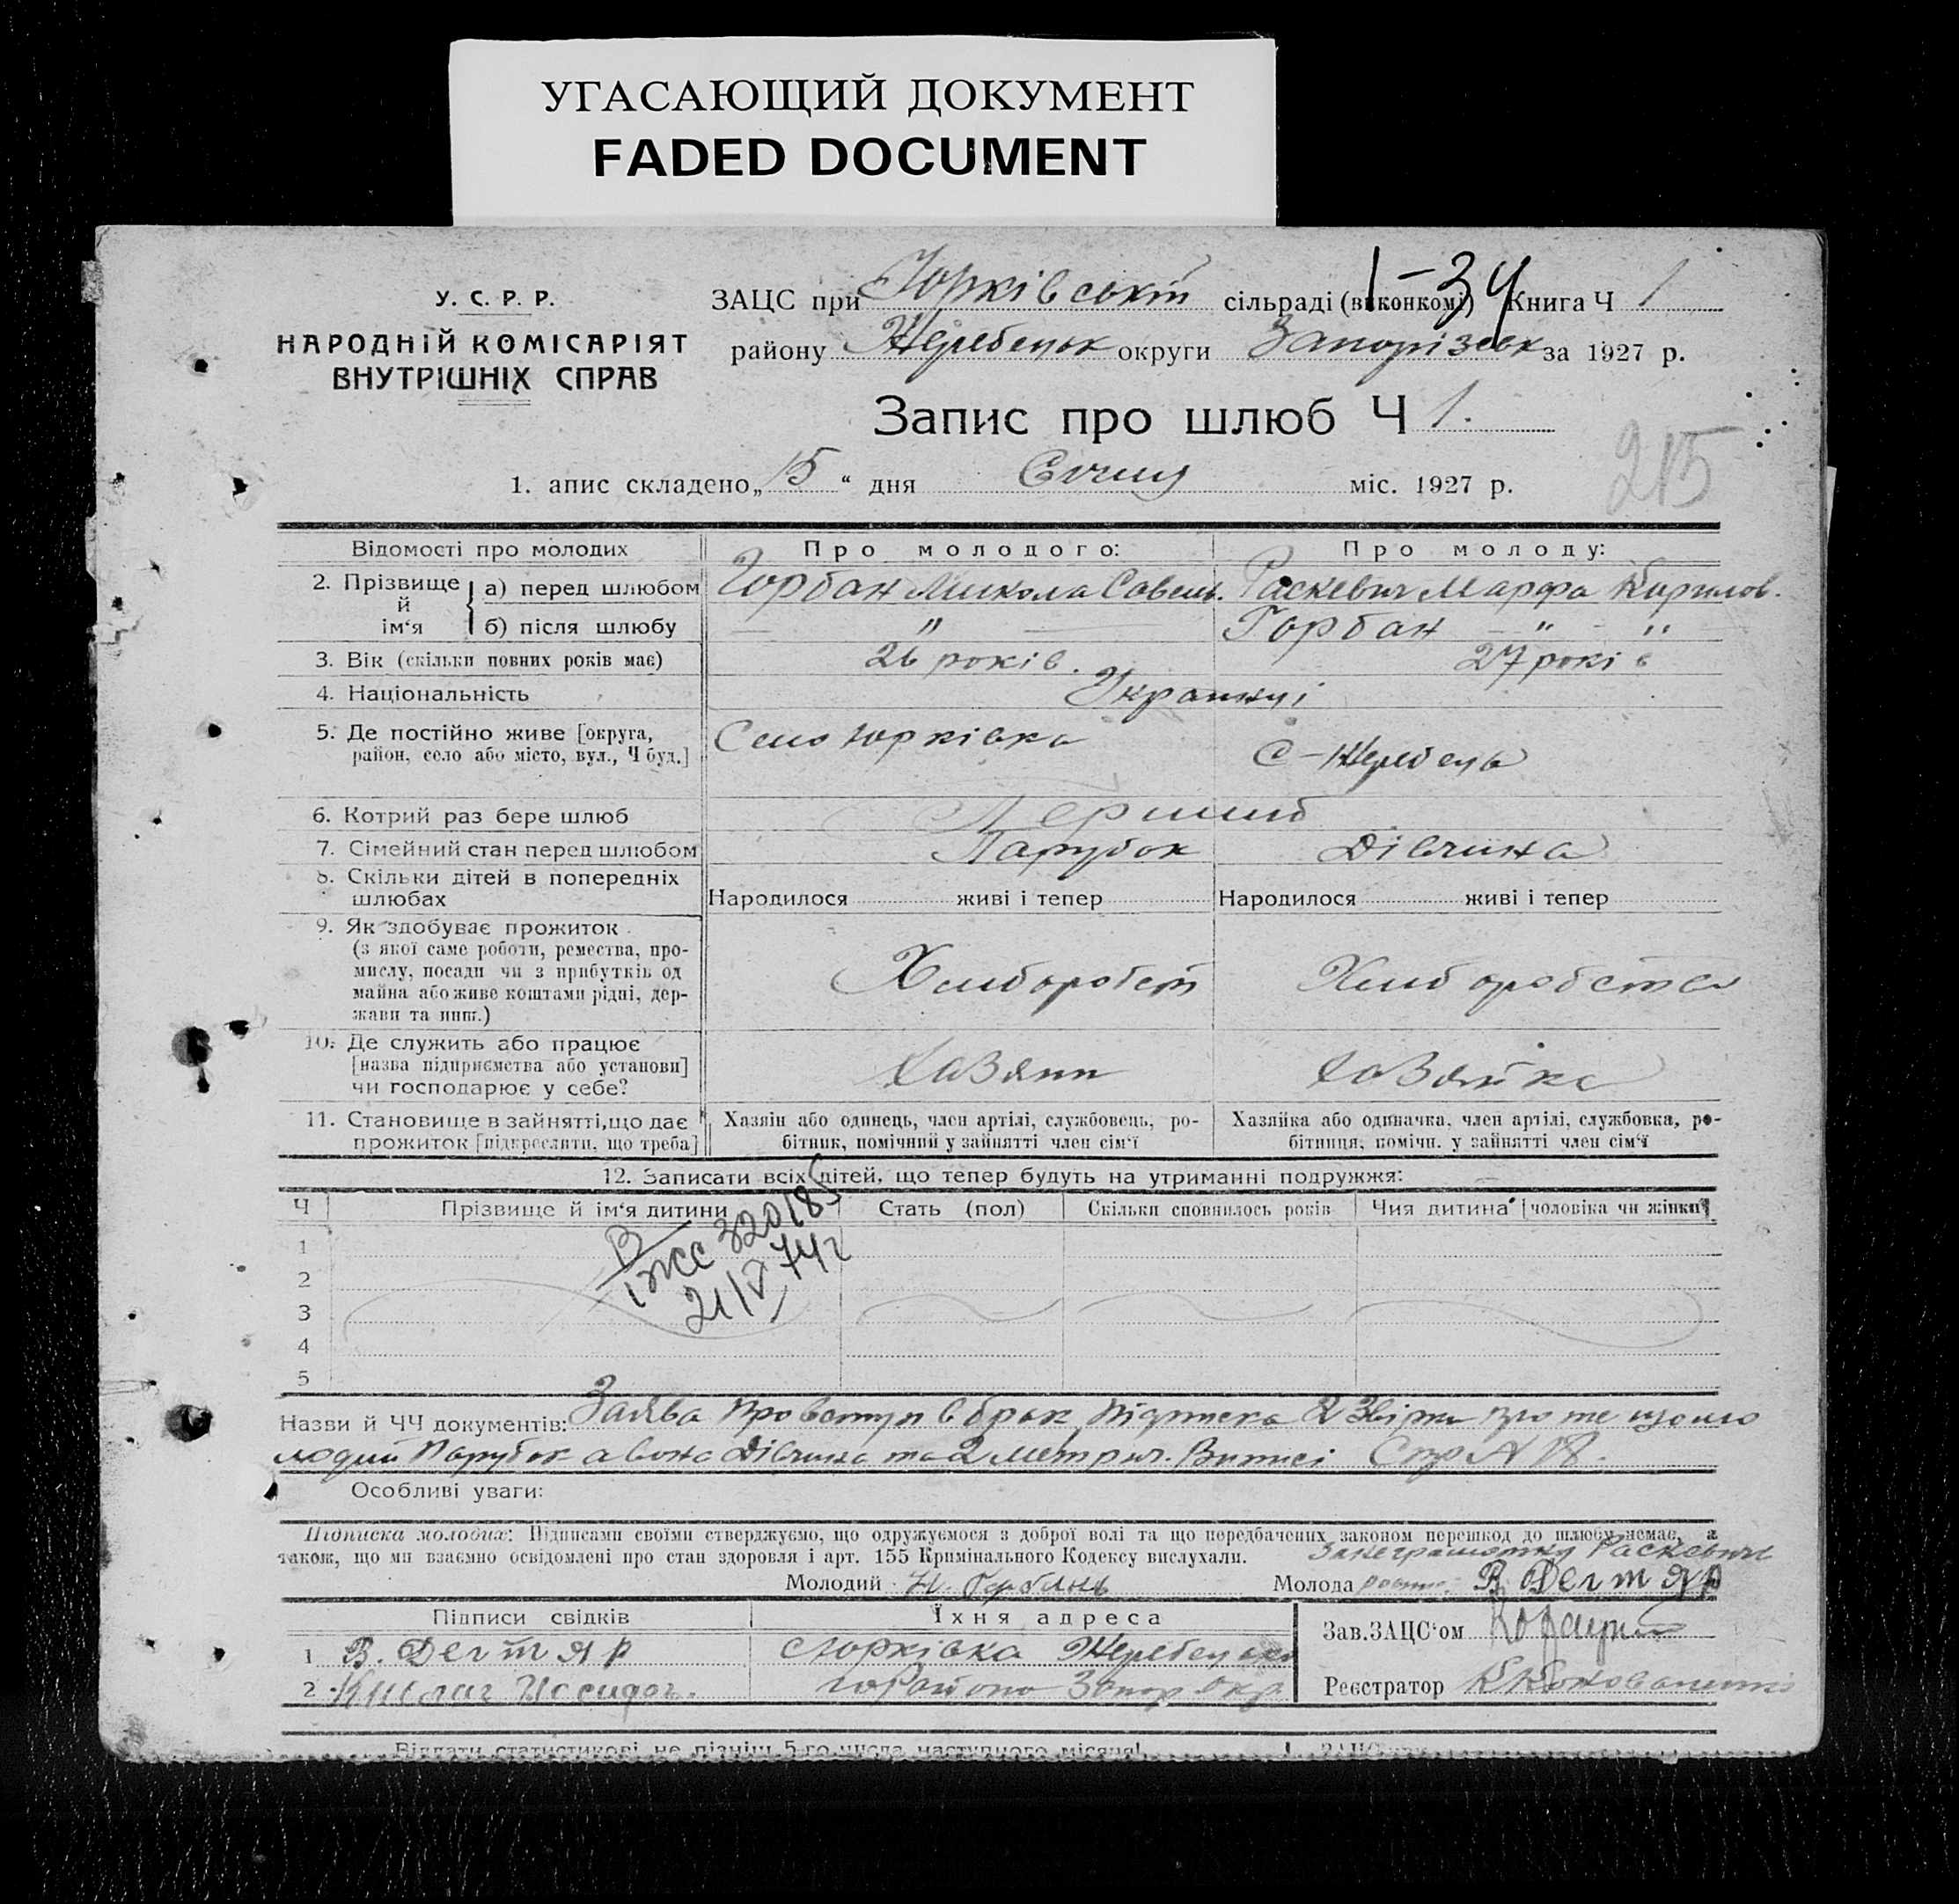 УГАСАЮЩИЙ ДОКУМЕНТ
FADED DOCUMENT
У. С. Р. Р.
НАРОДНІЙ КОМІСАРІЯТ
ВНУТРІШНІХ СПРАВ
ЗАЦС при Юрківській сільраді (виконкомі) Книга Ч 1
1-34
району Жеребецьк округи Запорізськ за 1927 р.
Запис про шлюб Ч 1.
215
1. апис складено „15“ дня Січня міс. 1927 р.
Відомості про молодих Про молодого: Про молоду:
2. Прізвище й ім‘я а) перед шлюбом Горбан Микола Савель. Раскевич Марфа Кирилов.
б) після шлюбу — " — Горбан — " - "
3. Вік (скільки повних років має) 26 років. 27 років
4. Національність Украинці
5. Де постійно живе [округа, Село Юрківка
район, село або місто, вул., Ч буд.] С-Жеребець
6. Котрий раз бере шлюб Перший
7. Сімейний стан перед шлюбом Парубок Дівчина
8. Скільки дітей в попередніх
шлюбах Народилося живі і тепер Народилося живі і тепер
9. Як здобуває прожиток
(з якої саме роботи, ремества, про-
мислу, посади чи з прибутків од Хлиборобст Хлиборобства
майна або живе коштами рідні, дер-
жави та инш.)
10. Де служить або працює
[назва підприємства або установи] Хазяин Хазяйка
чи господарює у себе?
11. Становище в зайнятті, що дає Хазяїн або одинець, член артілі, службовець, ро- Хазяйка або одиначка, член артілі, службовка, ро-
прожиток [підкреслити, що треба] бітник, помічний у зайнятті член сім‘ї бітниця, помічн. у зайнятті член сім‘ї
12. Записати всіх дітей, що тепер будуть на утриманні подружжя:
Ч Прізвище й ім‘я дитини Стать (пол) Скільки сповнилось років Чия дитина [чоловіка чи жінки]
1
2
3
4
5
320185
21/V 74г
Назви й ЧЧ документів: Заява про вступ в брак підписка 2 Звірки про те що мо
лодий Парубок а вона Дівчина та 2 метрич. Витисі Стр N 18.
Особливі уваги:
Підписка молодих: Підписами своїми стверджуємо, що одружуємося з доброї волі та що передбачених законом перешкод до шлюбу немає, а
також, що ми взаємно освідомлені про стан здоровля і арт. 155 Кримінального Кодексу вислухали. Раскевич
Молодий Н. Горбань Молода В Дегтяр
Підписи свідків Їхня адреса Зав. ЗАЦС‘ом
1 В. Дегтяр с Юрківка Жеребецько
2 го Району Запор Окр. Реєстратор
Віддати статистикові не пізніш 5-го числа наступного місяця!